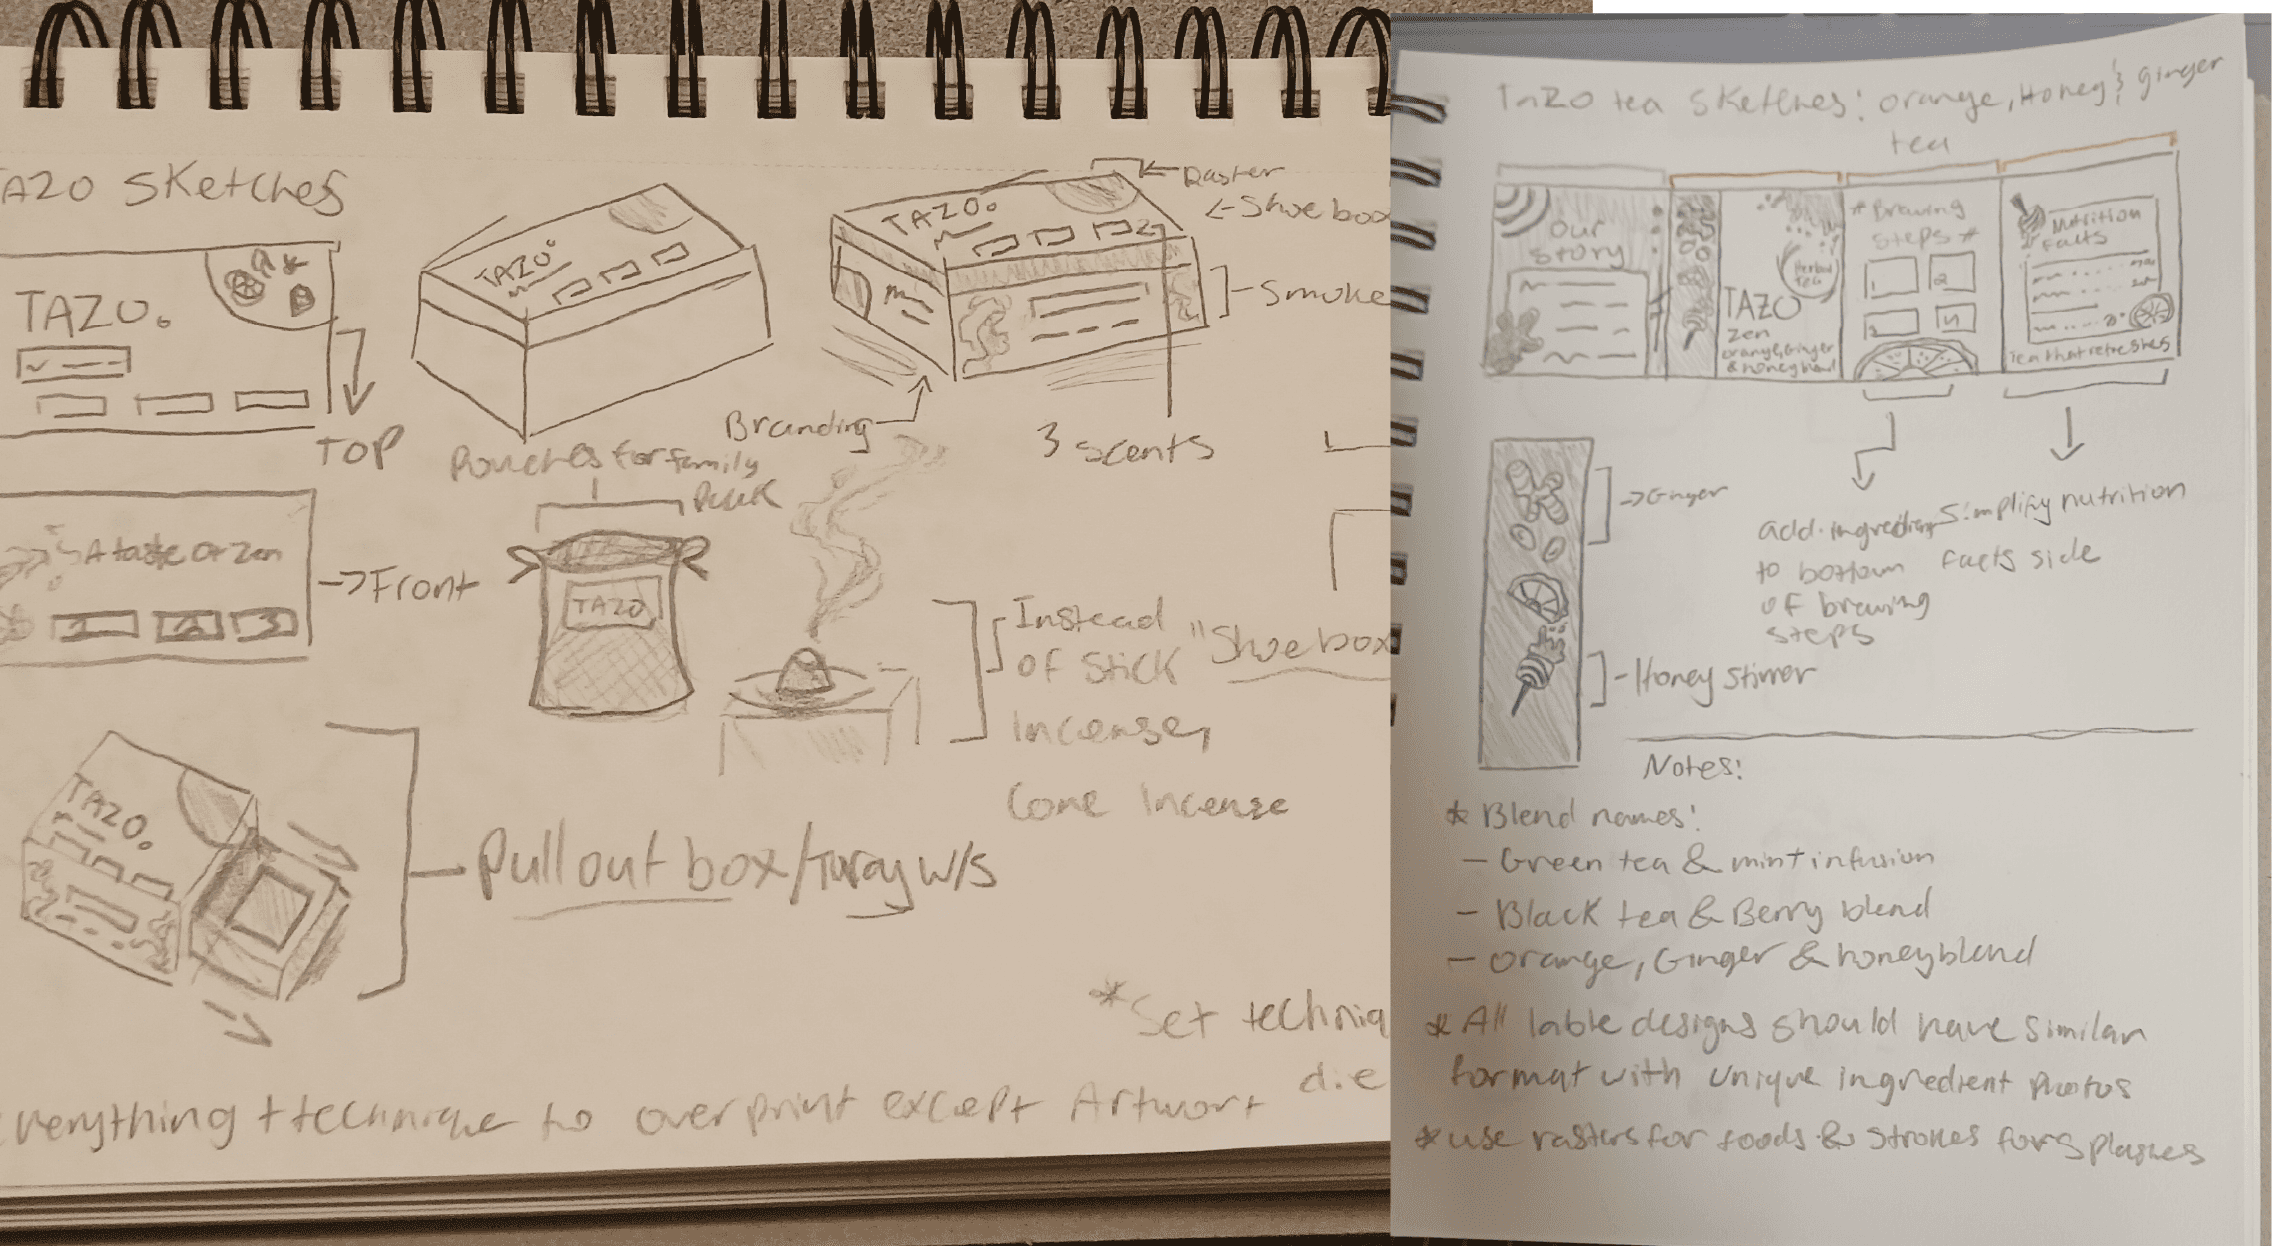 TAZO SKetches
TAZO.
TOP
TAZO.
TAZO.
2
Raster
Shoe box
Smoke
Branding
3 scents
Pouches for family
Pack
TAZO
A taste of Zen
1 2 3
Front
Instead
OF Stick
Incense,
Cone Incense
"Shoebox
TAZO.
Pull out box/Tray w/s
*Set techniq
die
everything + technique to overprint except Artwork
TAZO tea Sketches: orange, Honey & ginger
tea
our
story
Herbal
tea
TAZO
zen
orange, Ginger
& honey blend
*Brewing
steps*
1 2
3 4
Nutrition
Facts
Tea that refreshes
Ginger
Honey stirrer
add ingredients
to bottom
of brewing
steps
Simplify nutrition
facts side
Notes:
* Blend names:
- Green tea & mint infusion
- Black tea & Berry blend
- orange, Ginger & honey blend
* All lable designs should have similar
format with unique ingredient photos
* use rasters for foods & strokes for splashes